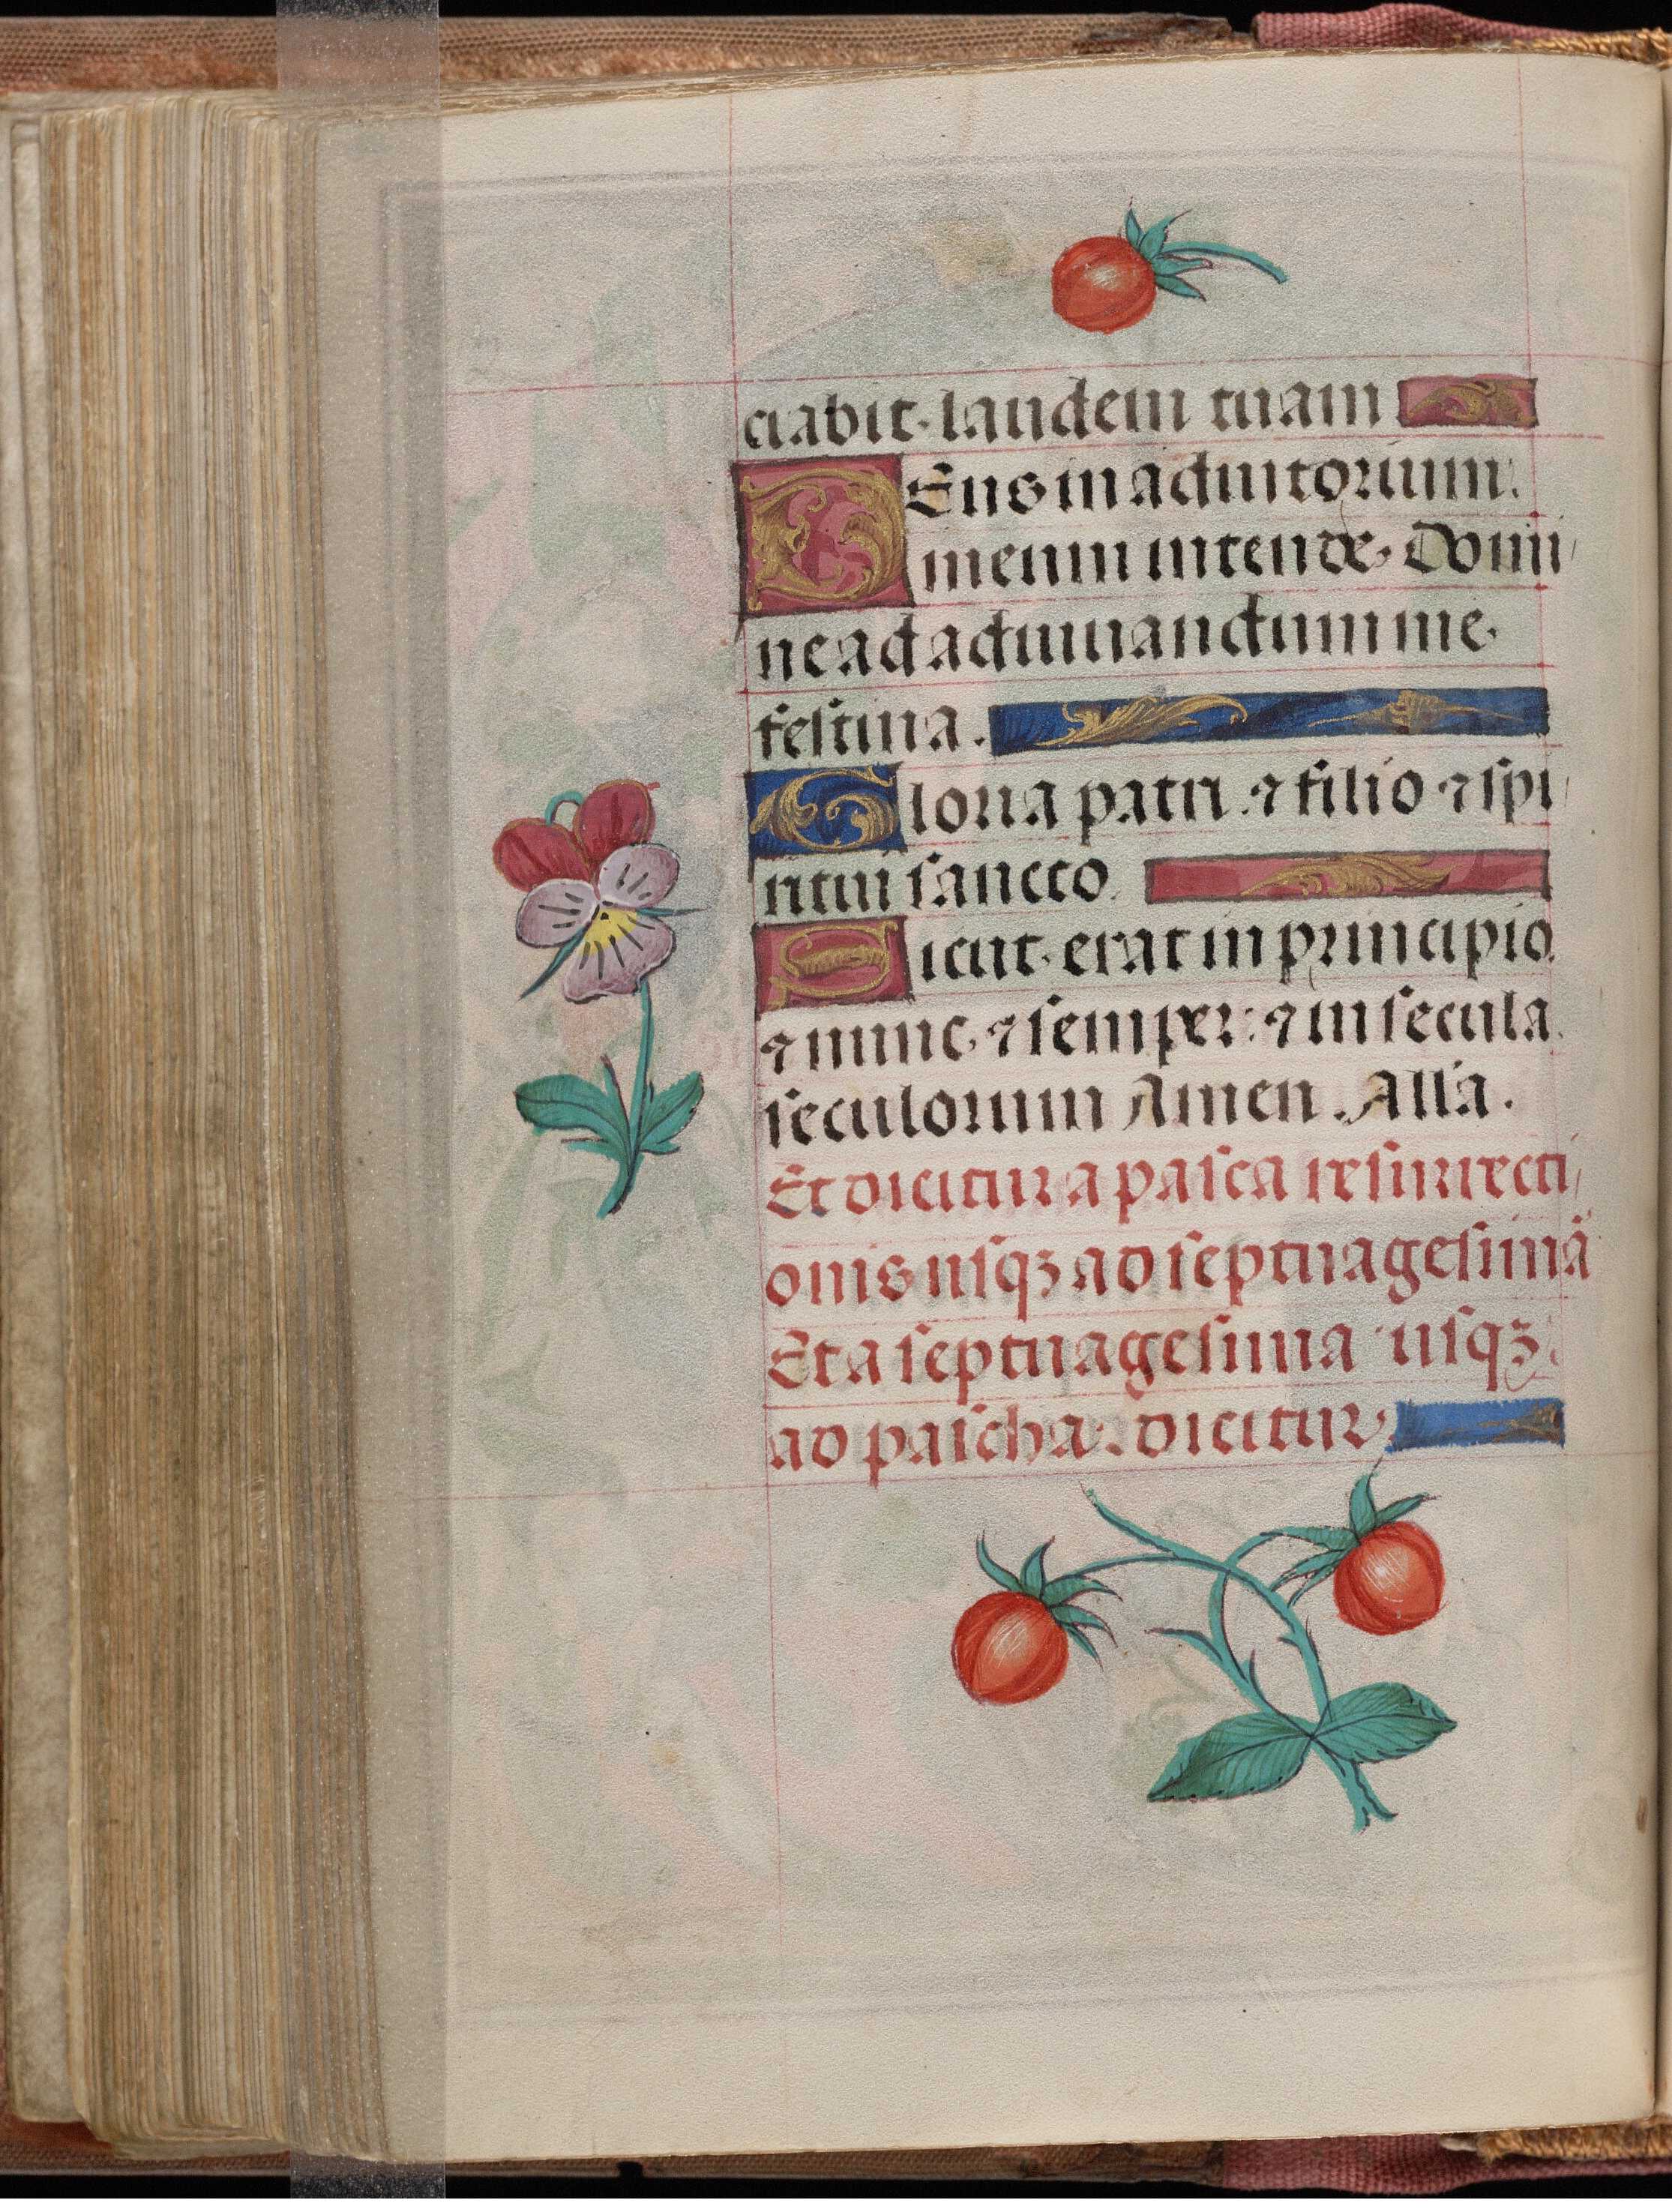 ciabit laudem tuam
Deus in adiutorium
meum intende. Domi
ne ad adiuuandum me
festina.
Gloria patri ⁊ filio ⁊ spi
ritui sancto
Sicut erat in principio
⁊ nunc ⁊ semper: ⁊ in secula
seculorum Amen. Alla.
Et dicitur a pasca resurrecti
onis usqꝫ ad septuagesimā
Et a septuagesima usqꝫ
ad pascha. dicitur